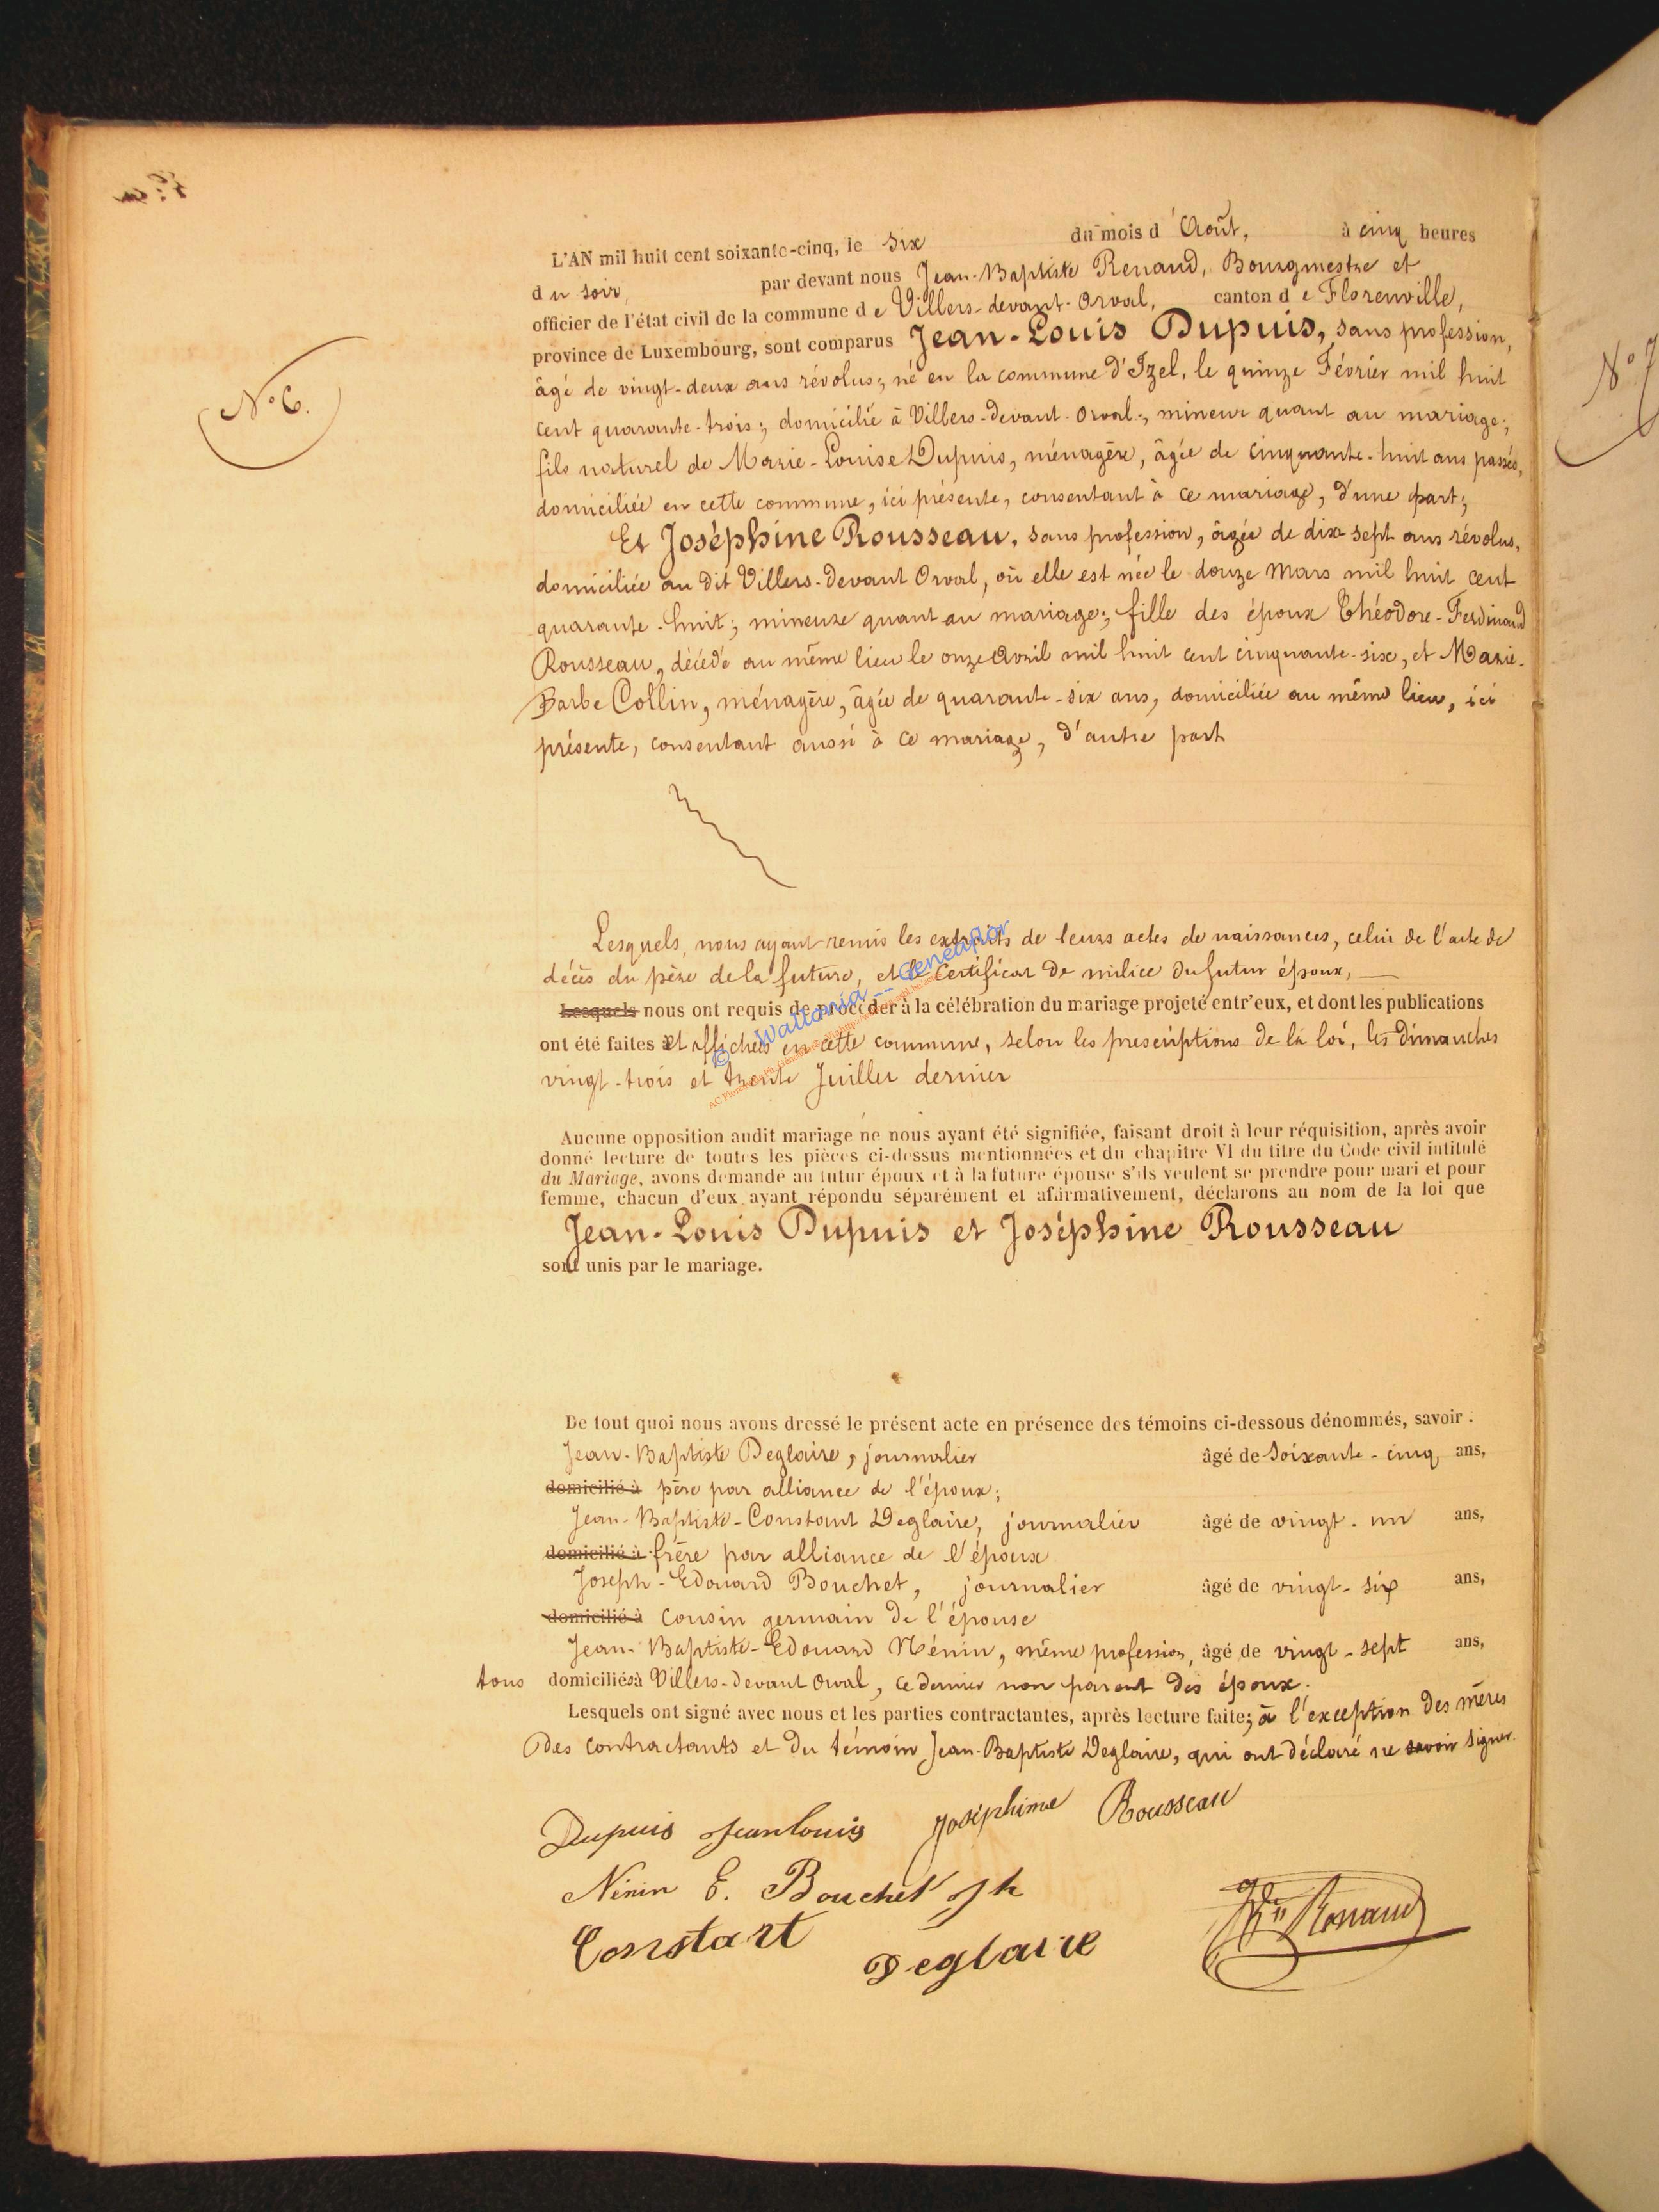 N° 6.
L'AN mil huit cent soixante-cinq, le Six du mois d'Août, à cinq heures
du soir, par devant nous Jean-Baptiste Renaud, Bourgmestre et
officier de l'état civil de la commune de Villers-devant-Orval, canton de Florenville,
province de Luxembourg, sont comparus Jean-Louis Dupuis, sans profession,
âgé de vingt-deux ans révolus; né en la commune d'Izel, le quinze Février mil huit
cent quarante-trois; domicilié à Villers-devant-Orval; mineur quant au mariage;
fils naturel de Marie-Louise Dupuis, ménagère, âgée de cinquante-huit ans passés,
domiciliée en cette commune, ici présente, consentant à ce mariage, d'une part;
Et Joséphine Rousseau, sans profession, âgée de dix-sept ans révolus,
domiciliée au dit Villers-devant Orval, où elle est née le douze Mars mil huit cent
quarante-huit; mineure quant au mariage; fille des époux Théodore-Ferdinand
Rousseau, décédé au même lieu le onze Avril mil huit cent cinquante-six, et Marie-
Barbe Collin, ménagère, âgée de quarante-six ans, domiciliée au même lieu, ici
présente, consentant aussi à ce mariage, d'autre part
Lesquels, nous ayant remis les extraits de leurs actes de naissances, celui de l'acte de
décès du père de la future, et le certificat de milice du futur époux,
Lesquels nous ont requis de procéder à la célébration du mariage projeté entr'eux, et dont les publications
ont été faites et affichées en cette commune, selon les prescriptions de la loi, les dimanches
vingt-trois et trente Juillet dernier
© Wallonia -- Geneaflor
Aucune opposition audit mariage ne nous ayant été signifiée, faisant droit à leur réquisition, après avoir
donné lecture de toutes les pièces ci-dessus mentionnées et du chapitre VI du titre du Code civil intitulé
du Mariage, avons demande au futur époux et à la future épouse s'ils veulent se prendre pour mari et pour
femme, chacun d'eux ayant répondu séparément et affirmativement, déclarons au nom de la loi que
Jean-Louis Dupuis et Joséphine Rousseau
sont unis par le mariage.
De tout quoi nous avons dressé le présent acte en présence des témoins ci-dessous dénommés, savoir :
Jean-Baptiste Deglaire, journalier âgé de Soixante-cinq ans,
domicilié à père par alliance de l'époux;
Jean-Baptiste-Constant Deglaire, journalier âgé de vingt-un ans,
domicilié à frère par alliance de l'époux
Joseph-Edouard Bouchet, journalier âgé de vingt-six ans,
domicilié à cousin germain de l'épouse
Jean-Baptiste-Edouard Nénin, même profession, âgé de vingt-sept ans,
tous domiciliés à Villers-devant Orval, ce dernier non parent des époux.
Lesquels ont signé avec nous et les parties contractantes, après lecture faite; à l'exception des mères
des contractants et du témoin Jean-Baptiste Deglaire, qui ont déclaré ne savoir signer.
Dupuis Jean louis Joséphine Rousseau
Nénin E. Bouchet Jh
Constant Deglaire Renaud
N° 7